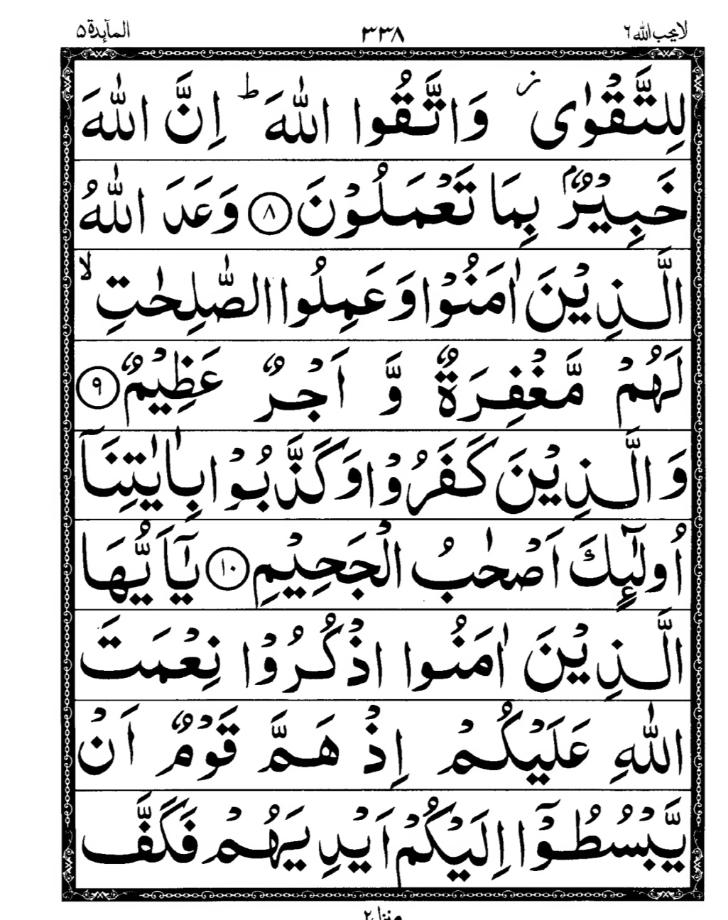 لایحب الله ٦ ٣٣٨ المآىدة ٥
لِلتَّقْوٰى ز وَاتَّقُوا اللّٰهَ ط اِنَّ اللّٰهَ
خَبِيْرٌۢ بِمَا تَعْمَلُوْنَ ٨ وَعَدَ اللّٰهُ
الَّذِيْنَ اٰمَنُوْا وَعَمِلُوا الصّٰلِحٰتِ لا
لَهُمْ مَّغْفِرَةٌ وَّ اَجْرٌ عَظِيْمٌ ٩
وَ الَّذِيْنَ كَفَرُوْا وَكَذَّبُوْا بِاٰيٰتِنَاۤ
اُولٰٓئِكَ اَصْحٰبُ الْجَحِيْمِ ١٠ يٰۤاَيُّهَا
الَّذِيْنَ اٰمَنُوا اذْكُرُوْا نِعْمَتَ
اللّٰهِ عَلَيْكُمْ اِذْ هَمَّ قَوْمٌ اَنْ
يَّبْسُطُوْۤا اِلَيْكُمْ اَيْدِيَهُمْ فَكَفَّ
منزل ٢